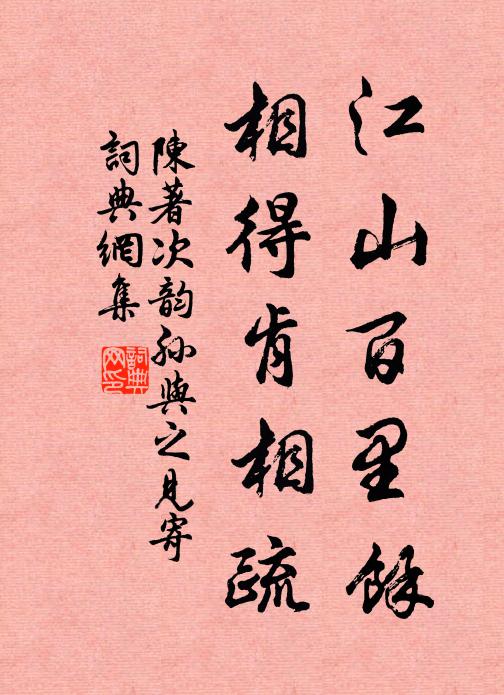 江山百里餘
相得肯相疏
陳著次韵孫與之見寄
詞典網集
詞典網印